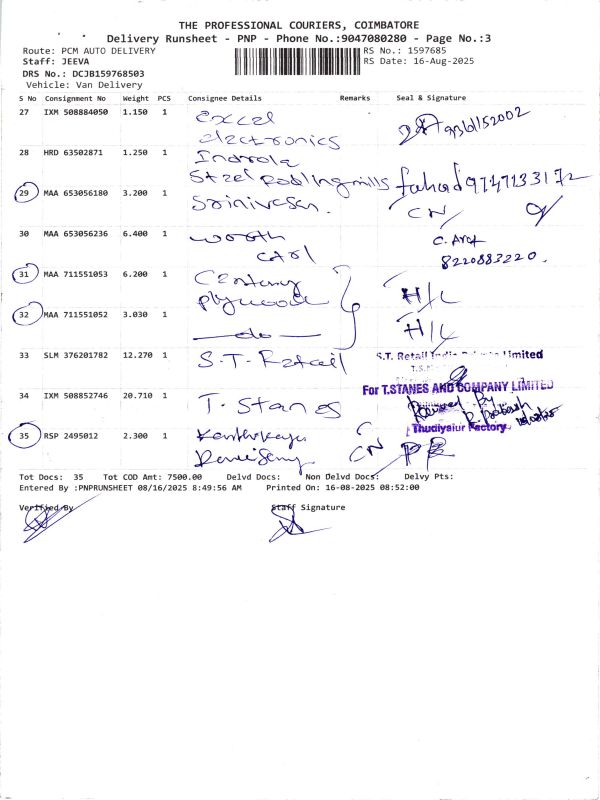 THE PROFESSIONAL COURIERS, COIMBATORE
Delivery Runsheet - PNP - Phone No.:9047080280 - Page No.:3
Route: PCM AUTO DELIVERY
RS No.: 1597685
Staff: JEEVA
RS Date: 16-Aug-2025
DRS No.: DCJB159768503
Vehicle: Van Delivery
S No Consignment No Weight PCS Consignee Details Remarks Seal & Signature
27 IXM 508884050 1.150 1 Excel
electronics
28 HRD 63502871 1.250 1 Indrola
Steel Rolling mills fahad 9747133172
29 MAA 653056180 3.200 1 Srinivasan. CN
30 MAA 653056236 6.400 1 worth
8220883220.
31 MAA 711551053 6.200 1 Century H/L
plywoods
32 MAA 711551052 3.030 1 do H/L
33 SLM 376201782 12.270 1 S.T. Retail S.T. Retail Limited
34 IXM 508852746 20.710 1 T. Stanes For T.STANES AND COMPANY LIMITED
Received By
Thudiyalur Factory
35 RSP 2495012 2.300 1 CN
Tot Docs: 35 Tot COD Amt: 7500.00 Delvd Docs: Non Delvd Docs: Delvy Pts:
Entered By :PNPRUNSHEET 08/16/2025 8:49:56 AM Printed On: 16-08-2025 08:52:00
Verified By Staff Signature